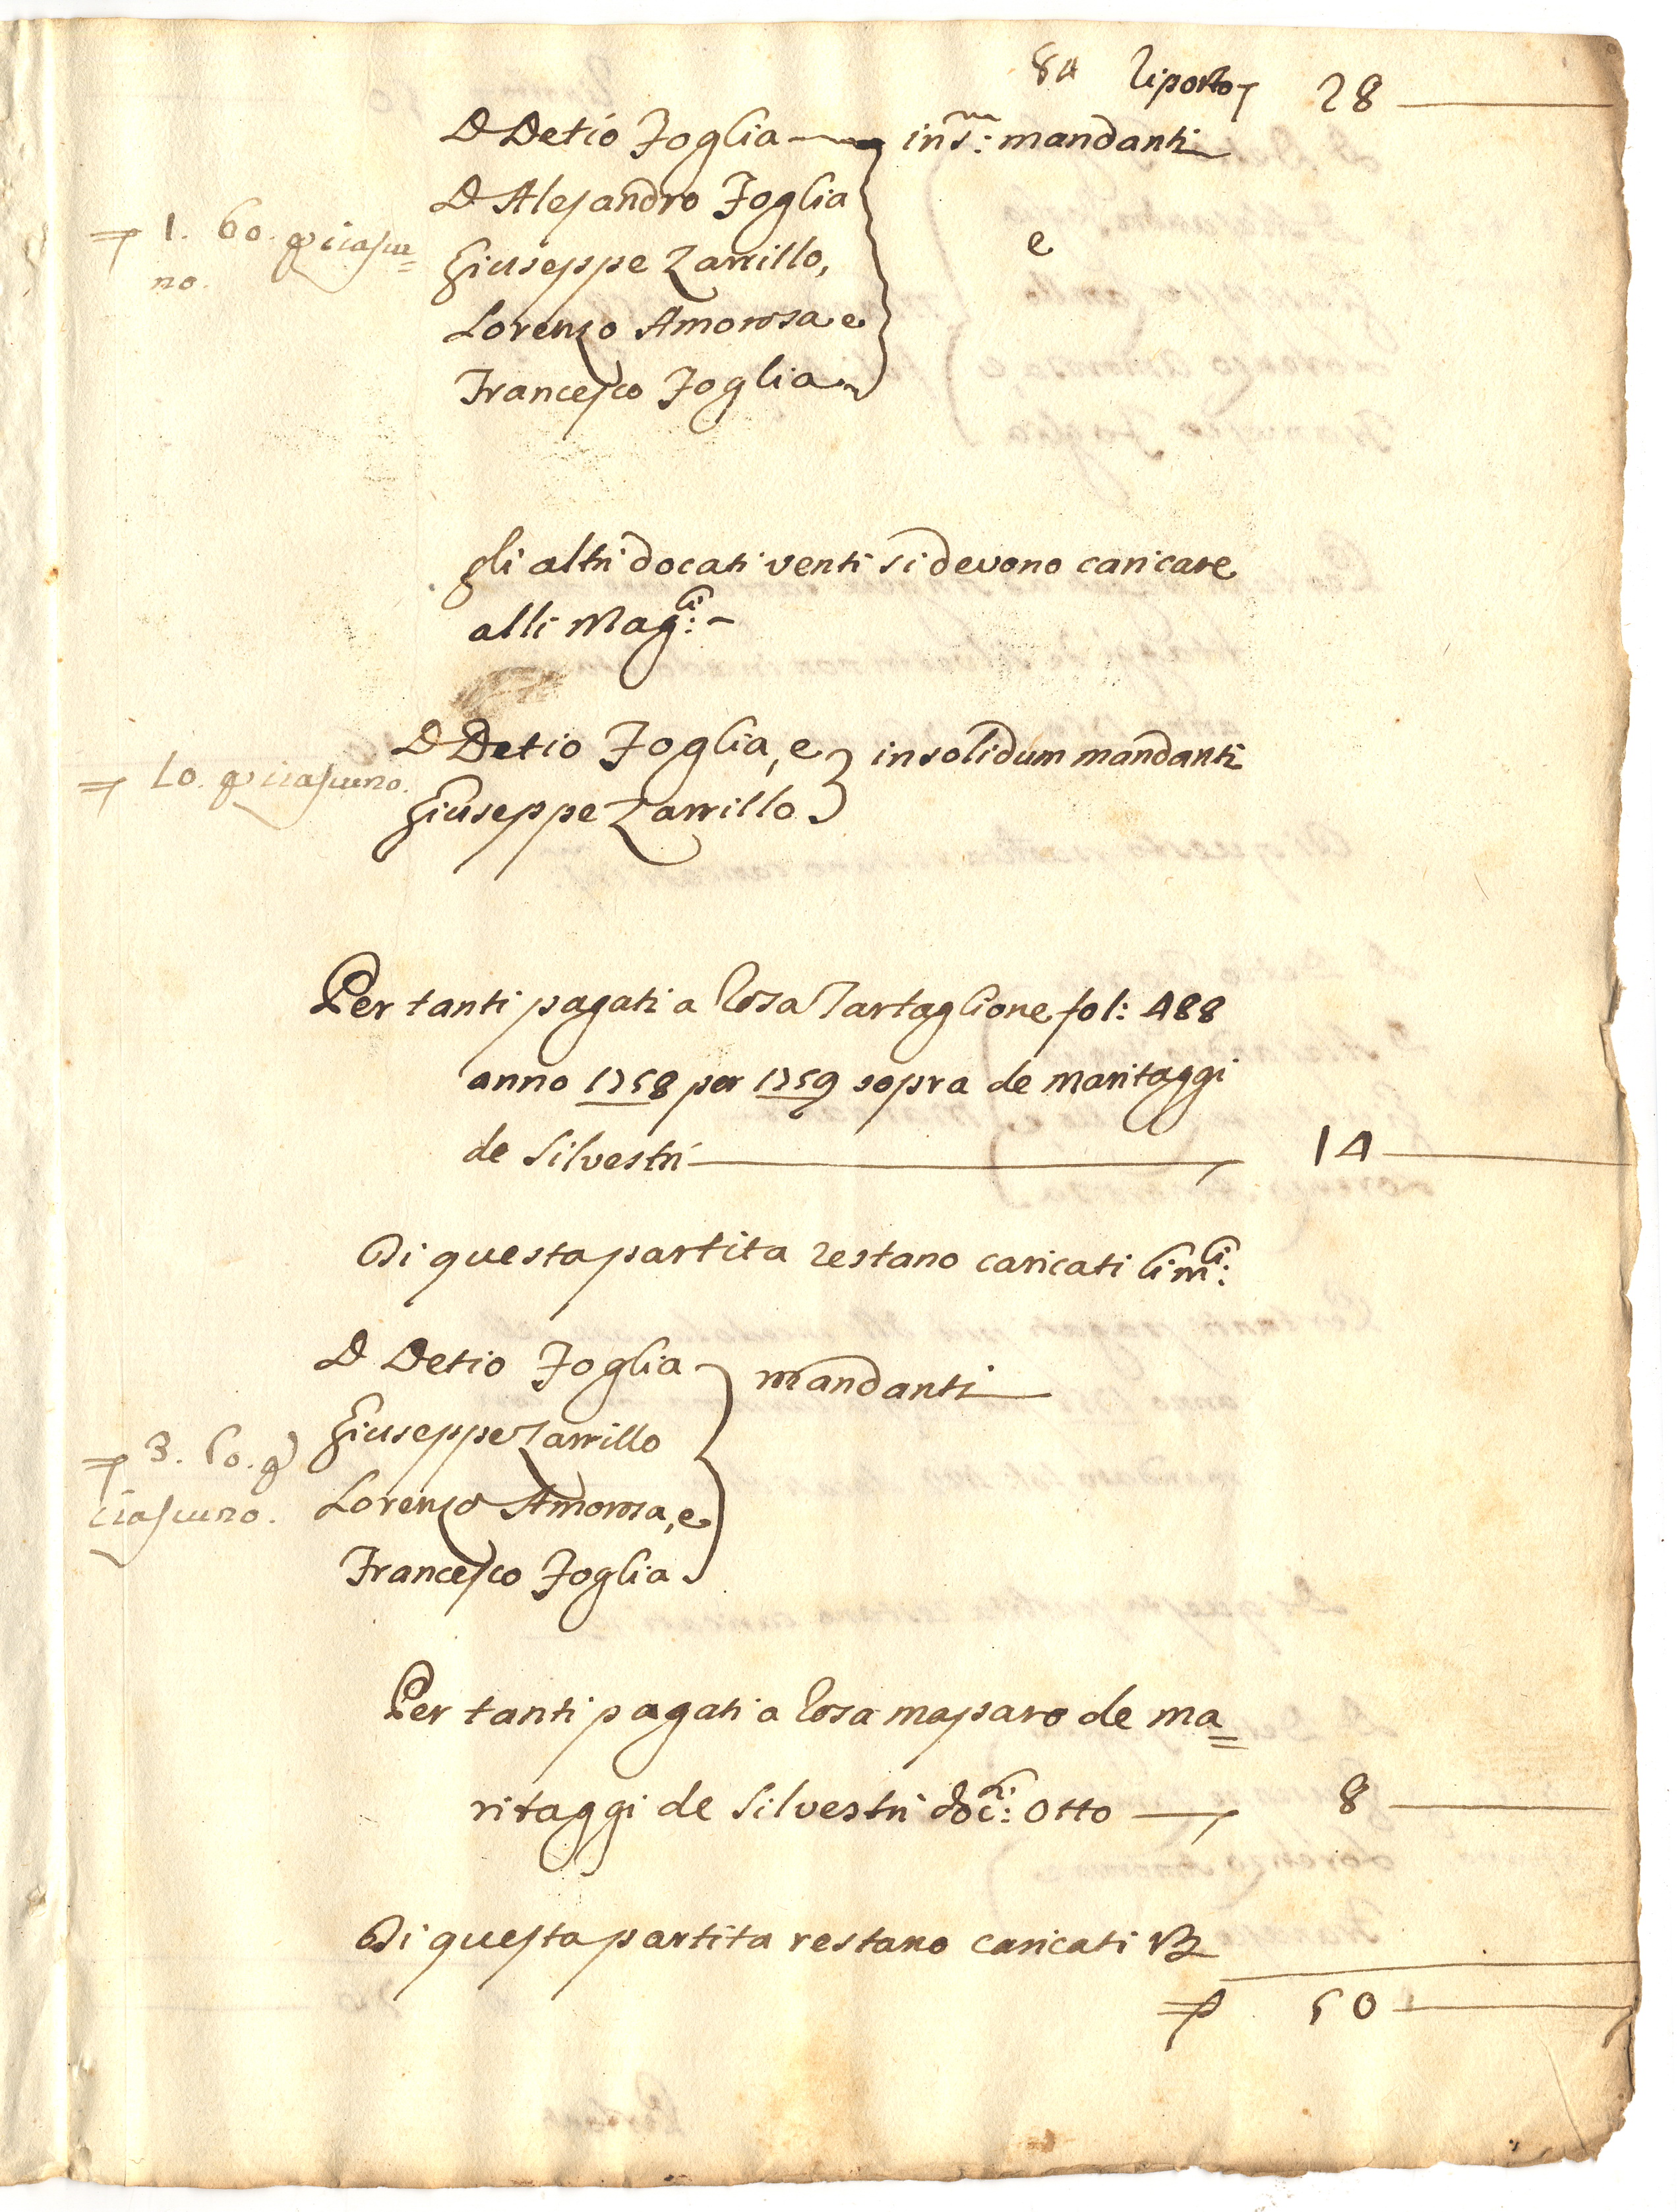 84 Riporto 28
D Detio Foglia ins:m mandanti
D Alesandro Foglia
1. 60. p ciascu=
no.
e
Giuseppe Zarrillo,
Lorenzo Amorosa e
Francesco Foglia
gli altri docati venti si devono caricare
alli Mag:ci -
D Detio Foglia, e insolidum mandanti
10. p ciascuno.
Giuseppe Zarrillo
Per tanti pagati a Rosa Tartaglione fol: 488
anno 1758 per 1759 sopra de maritaggi
de Silvestri 14
Di questa partita restano caricati li m:ci
D Detio Foglia mandanti
Giuseppe Zarrillo
3. 50. p
ciascuno.
Lorenzo Amorosa, e
Francesco Foglia
Per tanti pagati a Rosa masparo de ma=
ritaggi de Silvestri doc:ti otto 8
Di questa partita restano caricati
50